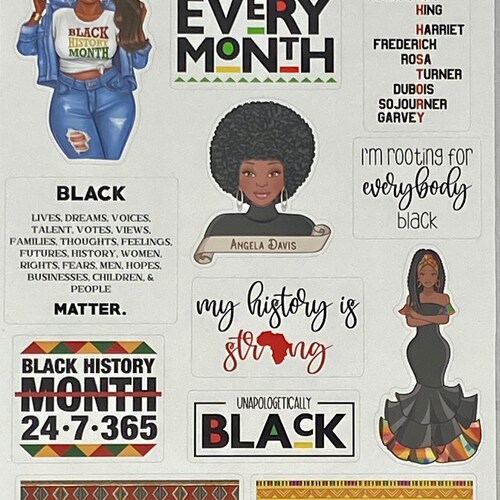 BLACK
HISTORY
MONTH
EVERY
MONTH
KING
HARRIET
FREDERICK
ROSA
TURNER
DUBOIS
SOJOURNER
GARVEY
I'm rooting for
everybody
black
ANGELA DAVIS
BLACK
LIVES, DREAMS, VOICES,
TALENT, VOTES, VIEWS,
FAMILIES, THOUGHTS, FEELINGS,
FUTURES, HISTORY, WOMEN,
RIGHTS, FEARS, MEN, HOPES,
BUSINESSES, CHILDREN, &
PEOPLE
MATTER.
my history is
strong
BLACK HISTORY
MONTH
24·7·365
UNAPOLOGETICALLY
BLACK